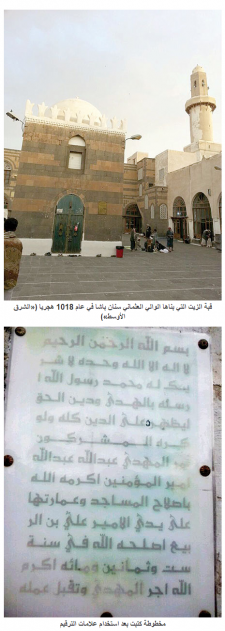 قبة الزيت التي بناها الوالي العثماني سنان باشا في عام 1018 هجريا («الشرق
الأوسط»)
بسم الله الرحمن الرحيم
لا اله الا الله وحده لا شر
يك له محمد رسول الله ا
رسله بالهدي ودين الحق
ليظهره على الدين كله ولو
كره المشركون
امر المهدي عبدالله عبدالله
امير المؤمنين اكرمه الله
باصلاح المساجد وعمارتها
على يدي الامير علي بن الر
بيع اصلحه الله في سنة
ست وثمانين ومائه اكرم
الله اجر المهدي وتقبل عمله
مخطوطة كتبت بعد استخدام علامات الترقيم